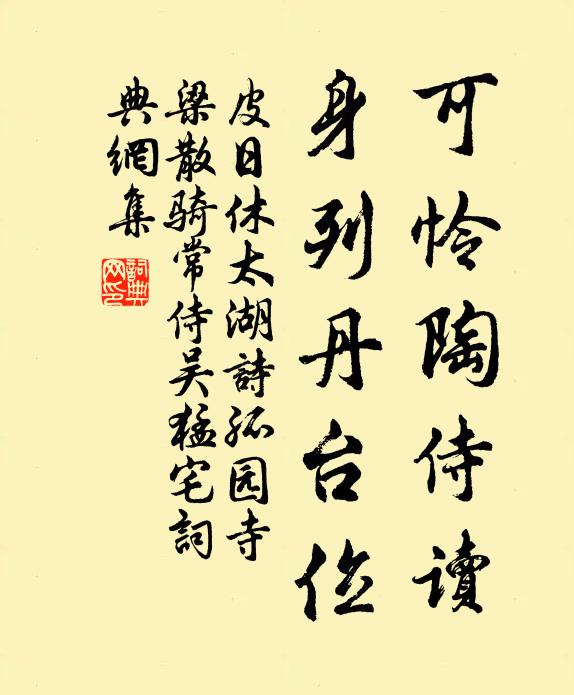 可怜陶侍讀
身列丹台位
皮日休太湖詩孤园寺
梁散骑常侍吴猛宅詞
典網集
詞典網印